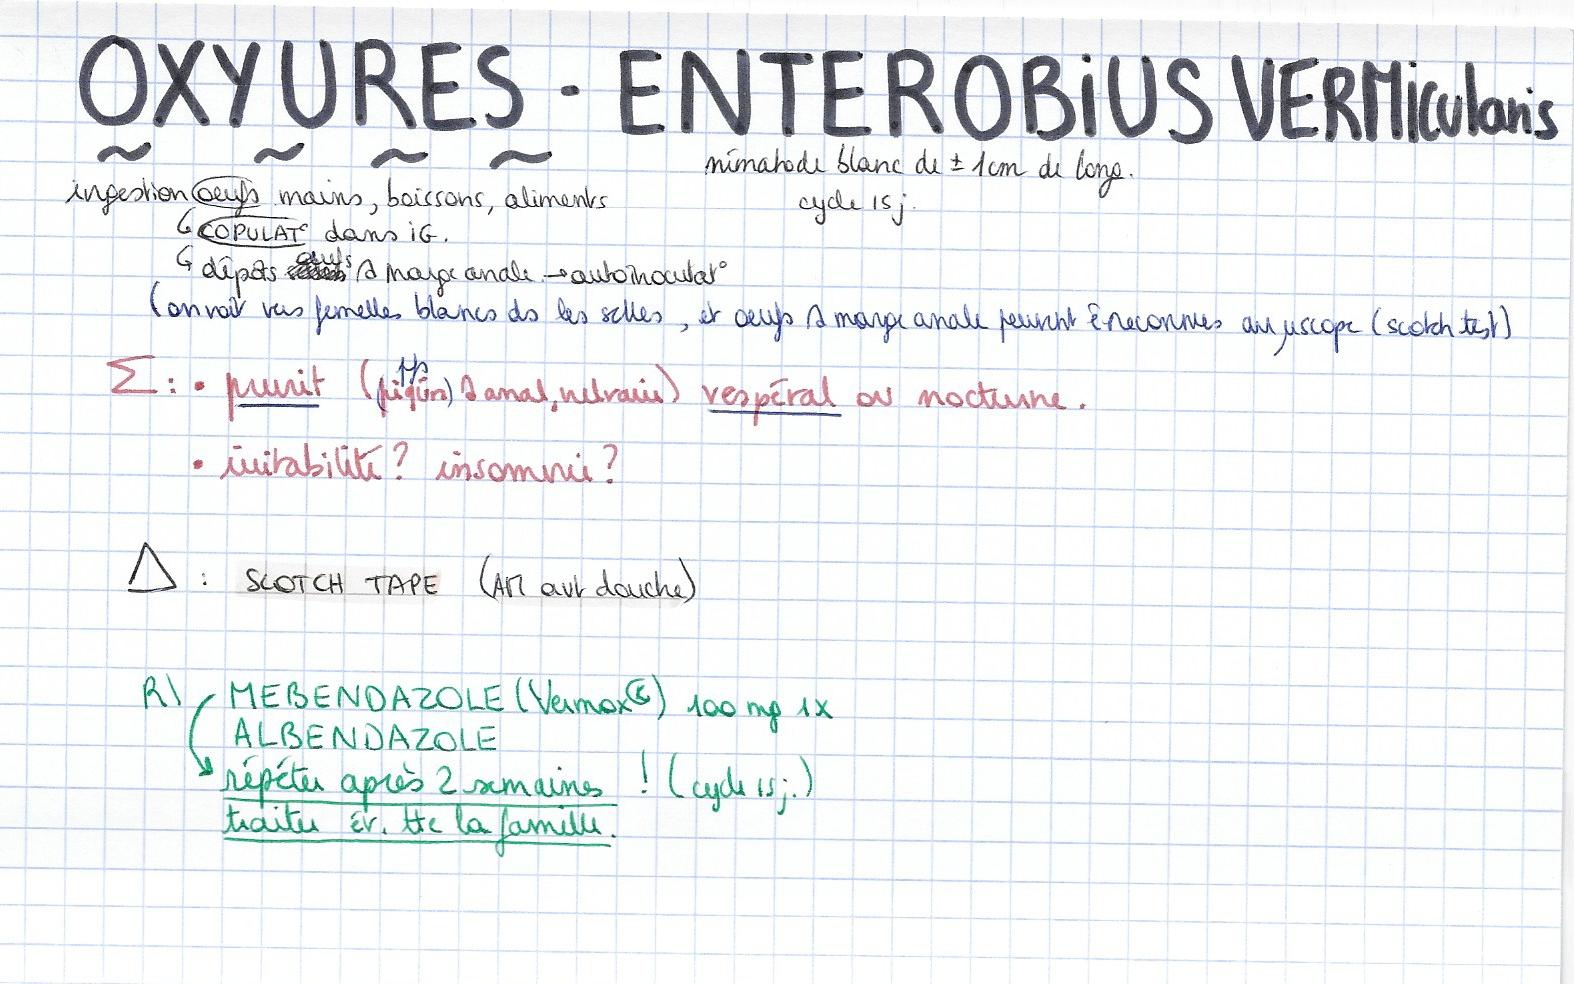 OXYURES - ENTEROBiUS VERMicularis
nimatode blanc de ± 1cm de long.
ingestion oeufs mains, boissons, aliments
cycle 15 j.
↳ COPULAT° dans iG.
↳ dépots oeufs marge anale → autoinoculat°
(on voit vers femelles blancs ds les selles, et oeufs marge anale peuvent ê reconnues au µscope (scotch test)
Σ : • prurit (anal, vulvaire) vespéral ou nocturne.
• irritabilité? insomnie?
Δ : SCOTCH TAPE (AM avt douche)
R\ MEBENDAZOLE (Vermox®) 100 mg 1x
ALBENDAZOLE
répéter après 2 semaines ! (cycle 15 j.)
traiter év. tte la famille.